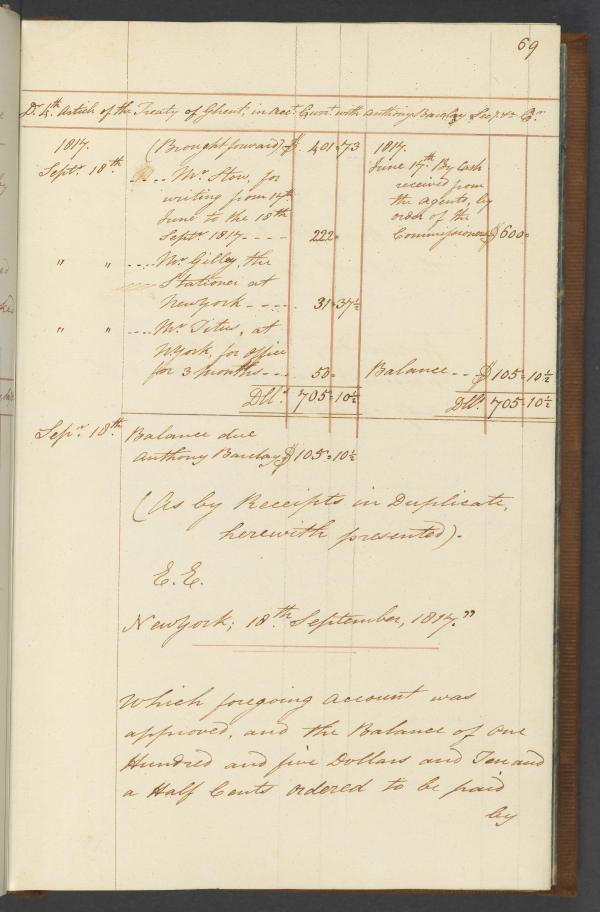 69
Dr. 4th. Article of the Treaty of Ghent; in acct. Curt. with Anthony Barclay Secy. &c Cr.
1817. (Brought forward) $ 401.73
Septr. 18th. .... Mr. Stow, for
writing from 17th.
June to the 18th
Septr. 1817 - - - - 222=
" " .... Mr. Gilley, the
Stationer at
New York - - - - - 31=37½
" " .... Mr. Titus, at
NYork, for Office
for 3 months - - - 50=
Dlls. 705=10½
1817.
June 17th. By Cash
received from
the Agents, by
order of the
Commissioners $ 600=
Balance - - $ 105=10½
Dlls. 705=10½
Sepr. 18th. Balance due
Anthony Barclay $ 105=10½
(As by Receipts in Duplicate,
herewith presented).
E.E.
New York; 18th. September, 1817."
Which foregoing Account was
approved, and the Balance of One
Hundred and five Dollars and Ten and
a Half Cents ordered to be paid
by